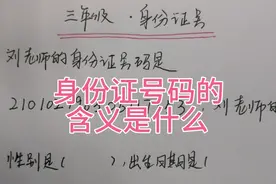 三年级·身份证号
刘老师的身份证号码是
身份证号码的
含义是什么
刘老师的
性别是( ),出生日期是(